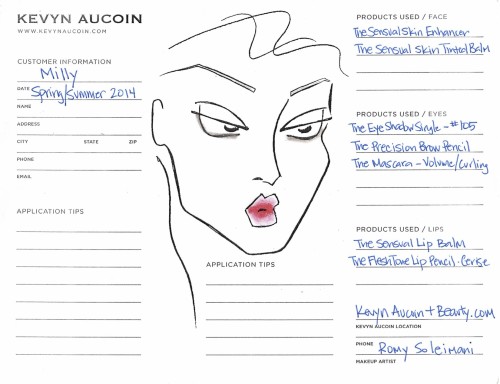 KEVYN AUCOIN
WWW.KEVYNAUCOIN.COM
CUSTOMER INFORMATION
Milly
DATE Spring/Summer 2014
NAME
ADDRESS
CITY STATE ZIP
PHONE
EMAIL
APPLICATION TIPS
APPLICATION TIPS
PRODUCTS USED / FACE
The Sensual Skin Enhancer
The Sensual Skin Tinted Balm
PRODUCTS USED / EYES
The Eye Shadow Single - #105
The Precision Brow Pencil
The Mascara - Volume/Curling
PRODUCTS USED / LIPS
The Sensual Lip Balm
The Flesh Tone Lip Pencil - Cerise
Kevyn Aucoin + Beauty.com
KEVYN AUCOIN LOCATION
PHONE Romy Soleimani
MAKEUP ARTIST